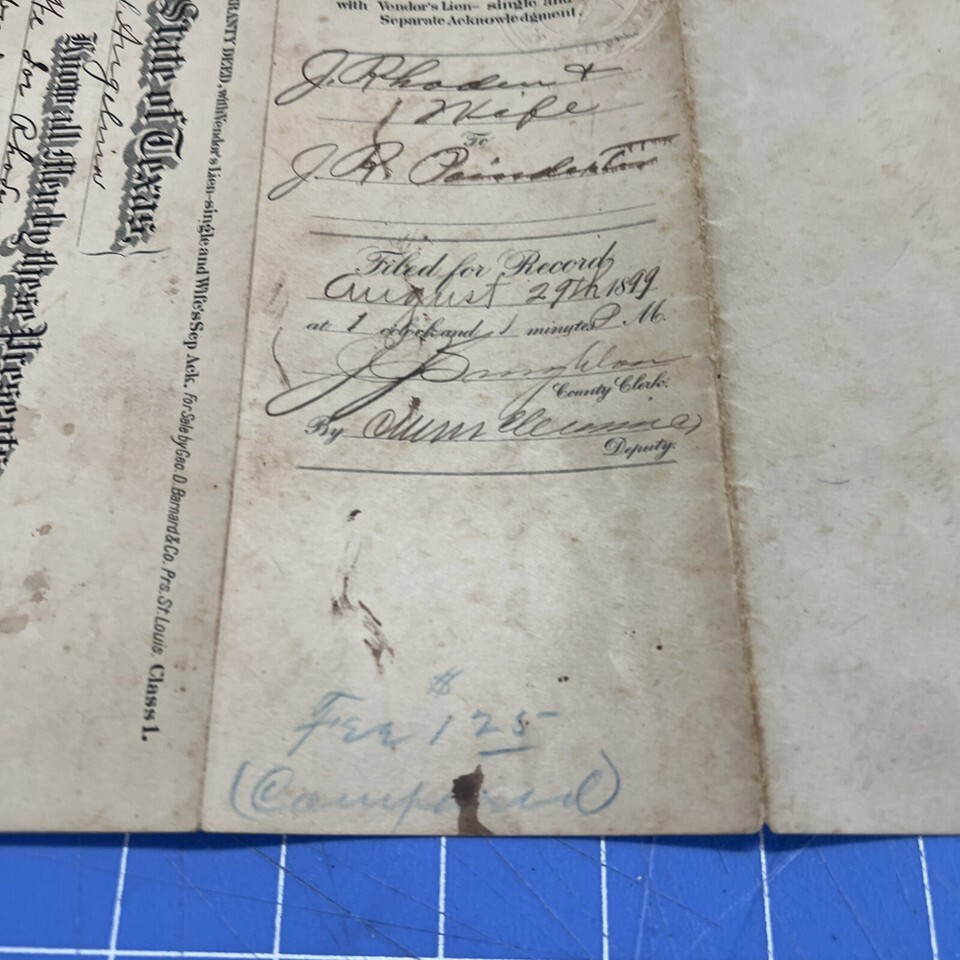 with Vendor's Lien- single and
Separate Acknowledgment.
J. Rhoden &
Wife
To
J. R. Poindexter
Filed for Record
August 29th 1899
at 1 o'clock and 1 minutes P. M.
County Clerk.
By
Deputy.
Fee $1 25
(Compared)
State of Texas,
Angelina
Know all Men by these Presents
RANTY DEED, with Vendor's Lien-single and Wife's Sep Ack. For Sale by Geo. D. Barnard & Co. Prs. St. Louis. Class 1.